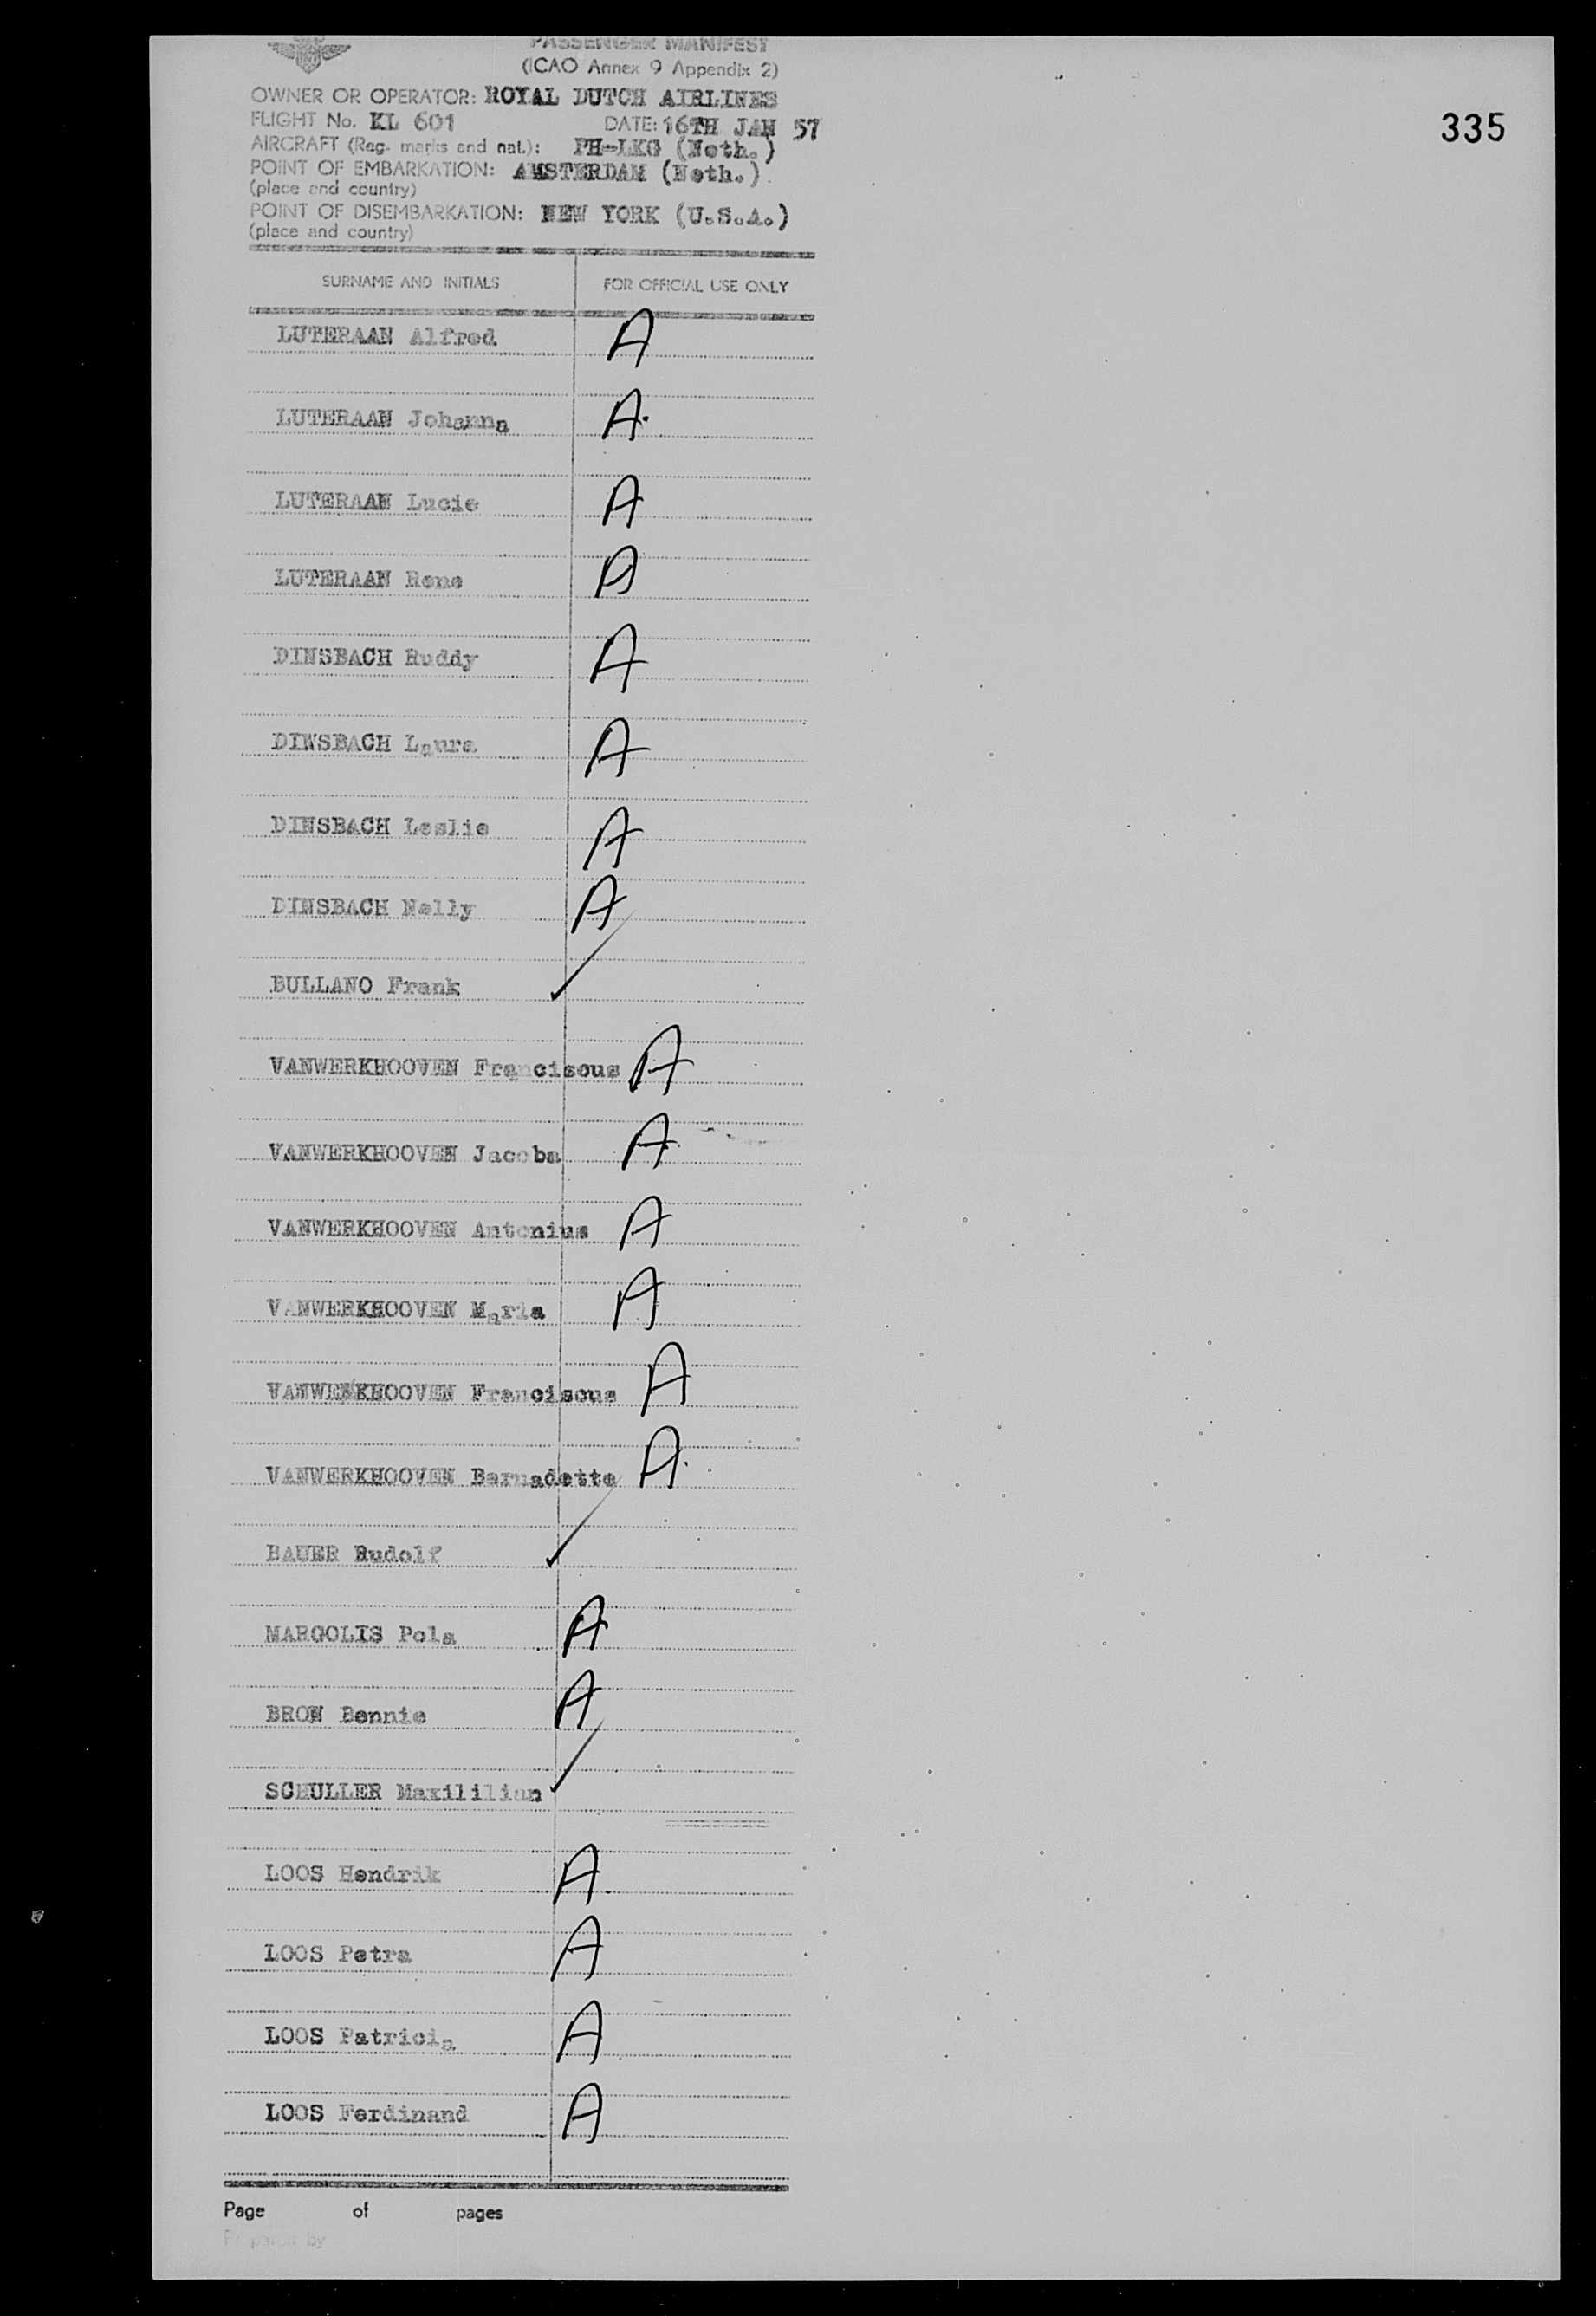 PASSENGER MANIFEST
(ICAO Annex 9 Appendix 2)
335
OWNER OR OPERATOR: ROYAL DUTCH AIRLINES
FLIGHT No. KL 601 DATE: 16TH JAN 57
AIRCRAFT (Reg. marks and nat.): PH-LKG (Neth.)
POINT OF EMBARKATION: AMSTERDAM (Neth.)
(place and country)
POINT OF DISEMBARKATION: NEW YORK (U.S.A.)
(place and country)
SURNAME AND INITIALS FOR OFFICIAL USE ONLY
LUTERAAN Alfred A
LUTERAAN Johanna A
LUTERAAN Lucie A
LUTERAAN Rene A
DINSBACH Ruddy A
DINSBACH Laura A
DINSBACH Leslie A
DINSBACH Nelly A
BULLANO Frank ✓
VANWERKHOOVEN Franciscus A
VANWERKHOOVEN Jacoba A
VANWERKHOOVEN Antonius A
VANWERKHOOVEN Maria A
VANWERKHOOVEN Franciscus A
VANWERKHOOVEN Bernadette A
BAUER Rudolf ✓
MARGOLIS Pola A
BRON Bennie A
SCHULLER Maxililian ✓
LOOS Hendrik A
LOOS Petra A
LOOS Patricia A
LOOS Ferdinand A
Page of pages
Prepared by